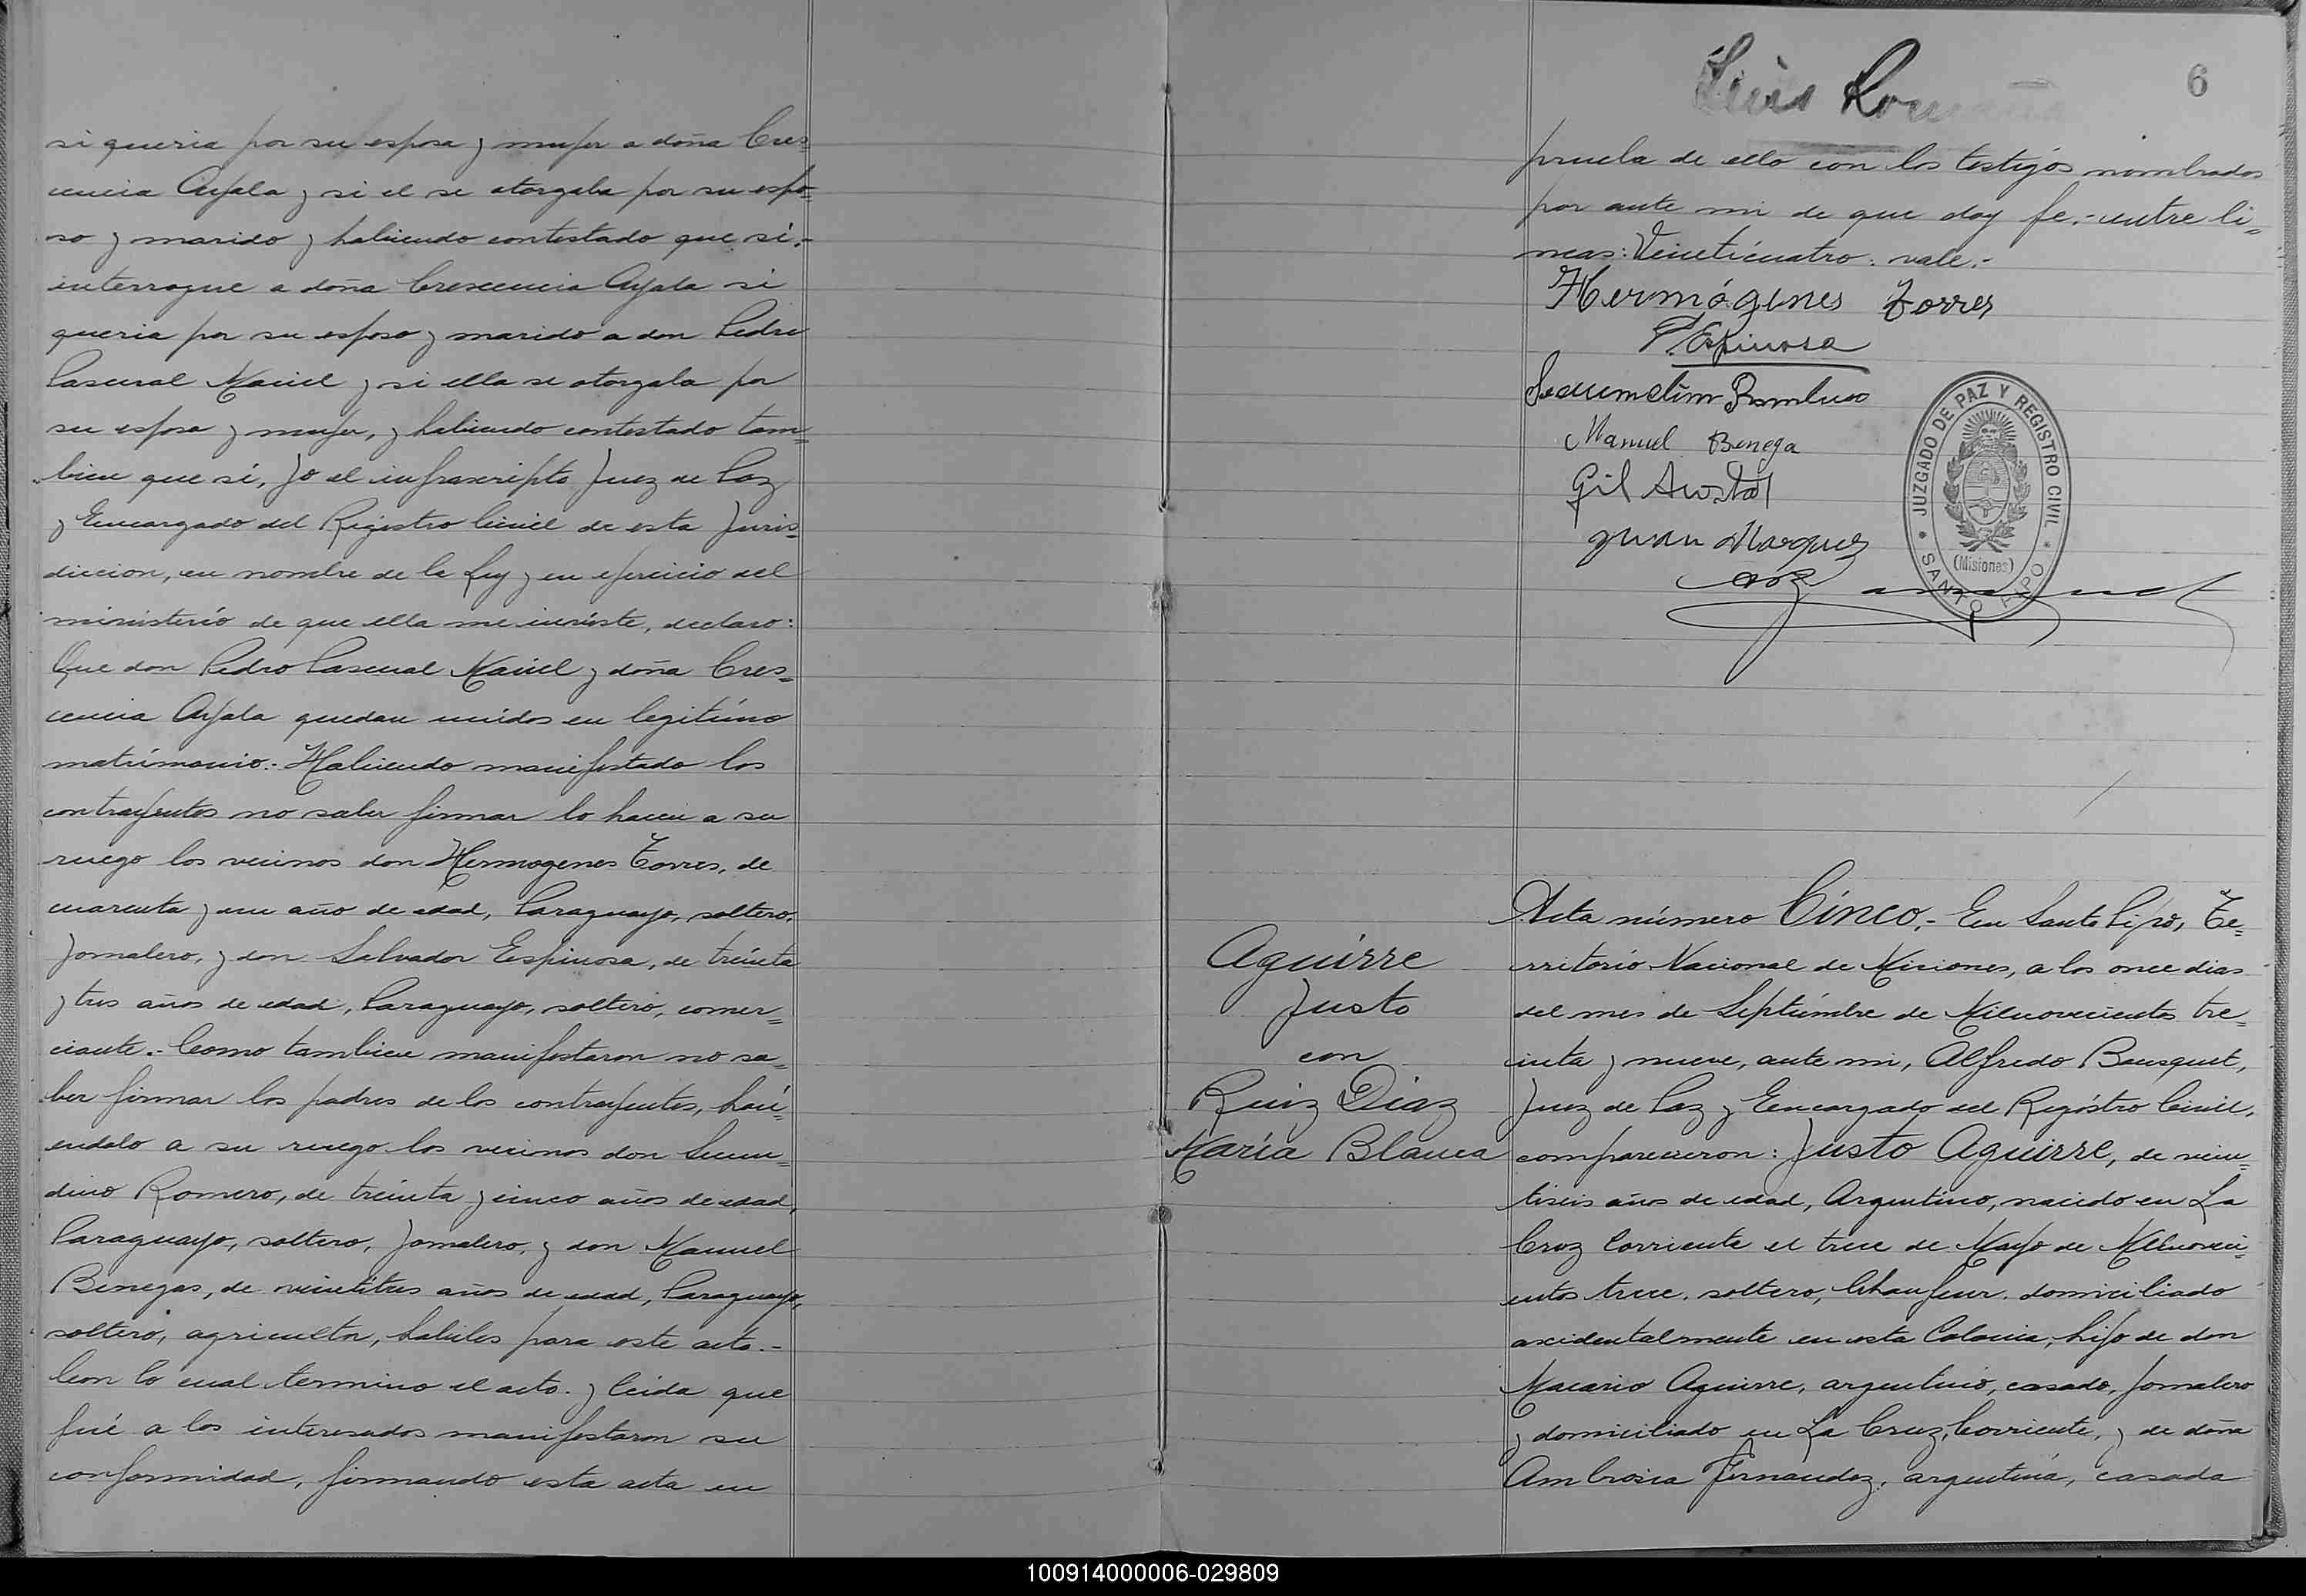 si queria por su esposa y mujer a doña Cres
cencia Ayala y si el se otorgaba por su espo=
so y marido y habiendo contestado que sí.-
interrogue a doña Crescencia Ayala si
queria por su esposo y marido a don Pedro
Pascual Maciel y si ella se otorgaba por
su esposa y mujer, y habiendo contestado tam=
bien que sí, yo el infrascripto Juez de Paz
y Encargado del Registro Civil de esta Juris=
diccion, en nombre de la Ley y en ejercicio del
ministerio de que ella me inviste, declaro:
Que don Pedro Pascual Maciel y doña Cres=
cencia Ayala quedan unidos en legitimo
matrimonio.- Habiendo manifestado los
contrayentes no saber firmar lo hacen a su
ruego los vecinos don Hermogenes Torres, de
cuarenta y un año de edad, Paraguayo, soltero,
Jornalero, y don Salvador Espinosa, de treinta
y tres años de edad, Paraguayo, soltero, comer=
ciante.- Como tambien manifestaron no sa=
ber firmar los padres de los contrayentes, haci=
endolo a su ruego los vecinos don Secun=
dino Romero, de treinta y cinco años de edad,
Paraguayo, soltero, Jornalero, y don Manuel
Benegas, de veintitres años de edad, Paraguayo,
soltero, agricultor, habiles para este acto.-
Con lo cual termino el acto. y leida que
fué a los interesados manifestaron su
conformidad, firmando esta acta en
6
Luis
prueba de ello con los testigos nombrados
por ante mi de que doy fe.- entre li=
neas: Veinticuatro: vale.-
Hermógenes Torres
Espinosa
Manuel Benega
Gil Acosta
Juan Marquez
JUZGADO DE PAZ Y REGISTRO CIVIL
(Misiones)
SANTO PIPO
Acta número Cinco.- En Santo Pipó, Te=
rritorio Nacional de Misiones, a los once dias
del mes de Septiembre de Milnovecientos tre=
inta y nueve, ante mi, Alfredo Bousquet,
Juez de Paz y Encargado del Registro Civil,
comparecieron: Justo Aguirre, de vein=
tiseis años de edad, Argentino, nacido en La
Cruz Corriente el trece de Mayo de Milnoveci=
entos trece. soltero, Chaufeur. domiciliado
accidentalmente en esta Colonia, hijo de don
Macario Aguirre, argentino, casado, Jornalero
y domiciliado en La Cruz, Corriente, y de doña
Ambrosia Fernandez, argentina, casada
Aguirre
Justo
con
Ruiz Diaz
María Blanca
100914000006-029809